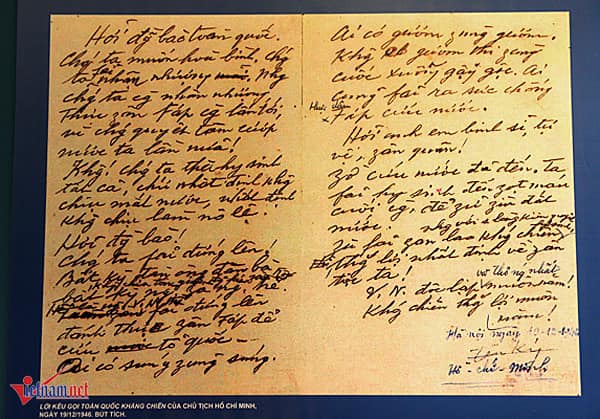 Hỡi đồng bào toàn quốc.
Chúng ta muốn hoà bình. Chúng
ta fải nhân nhượng. Nhg
chúng ta càng nhân nhượng
thực zân Fáp càng lấn tới,
vì chúng quyết tâm cướp
nước ta lần nữa!
Khg! chúng ta thà hy sinh
tất cả, chứ nhất định khg
chịu mất nước, nhất định
khg chịu làm nô lệ.
Hỡi đồng bào!
Chúng ta fải đứng lên!
Bất kỳ đàn ông đàn bà
bất kỳ
fải đứng lên
đánh thực zân Fáp để
cứu tổ quốc –
Ai có súng zùng súng.
Ai có gươm zùng gươm.
Khg có gươm thì zùng
cuốc xuổng gậy gộc. Ai
cũng fải ra sức chống
thực zân
Fáp cứu nước.
Hỡi anh em binh sĩ, tự
vệ, zân quân!
Zờ cứu nước đã đến. Ta
fải hy sinh đến zọt máu
cuối cùng, để zữ zìn đất
nước.
Zù fải zan lao khg chiến,
thắng lợi nhất định về zân
tộc ta!
thống nhất
V.N. độc lập muôn năm!
Kháng chiến thắng lợi muôn
năm!
Hà nội ngày 19-12-1946
Hồ-chí-Minh
Vietnam.net
LỜI KÊU GỌI TOÀN QUỐC KHÁNG CHIẾN CỦA CHỦ TỊCH HỒ CHÍ MINH,
NGÀY 19/12/1946. BÚT TÍCH.